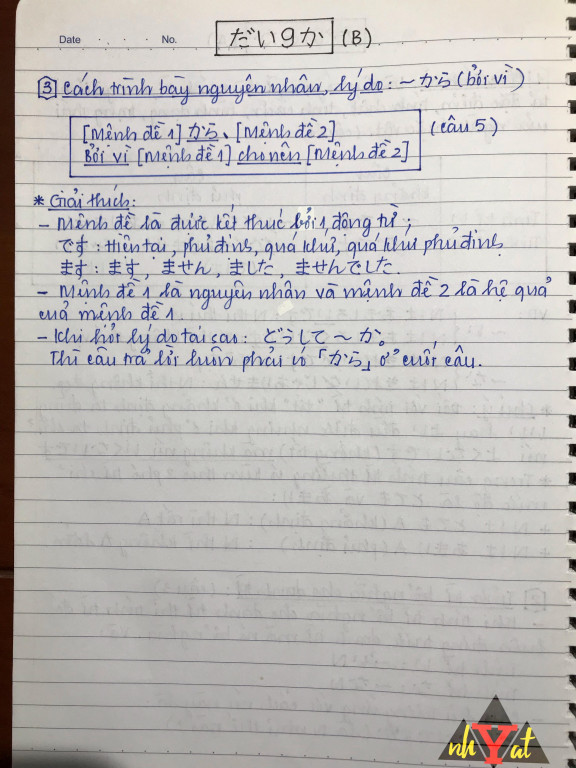 Date . . . No. だい9か (B)
3 Cách trình bày nguyên nhân, lý do: ～から (bởi vì)
[Mệnh đề 1] から、[Mệnh đề 2] (câu 5)
Bởi vì [mệnh đề 1] cho nên [mệnh đề 2]
* Giải thích:
– Mệnh đề là được kết thúc bởi 1 động từ;
です: Hiện tại, phủ định, quá khứ, quá khứ phủ định
ます: ます, ません, ました, ませんでした.
– Mệnh đề 1 là nguyên nhân và mệnh đề 2 là hệ quả
của mệnh đề 1
– Khi hỏi lý do tại sao: どうして～か。
Thì câu trả lời luôn phải có 「から」 ở cuối câu.
nhYat